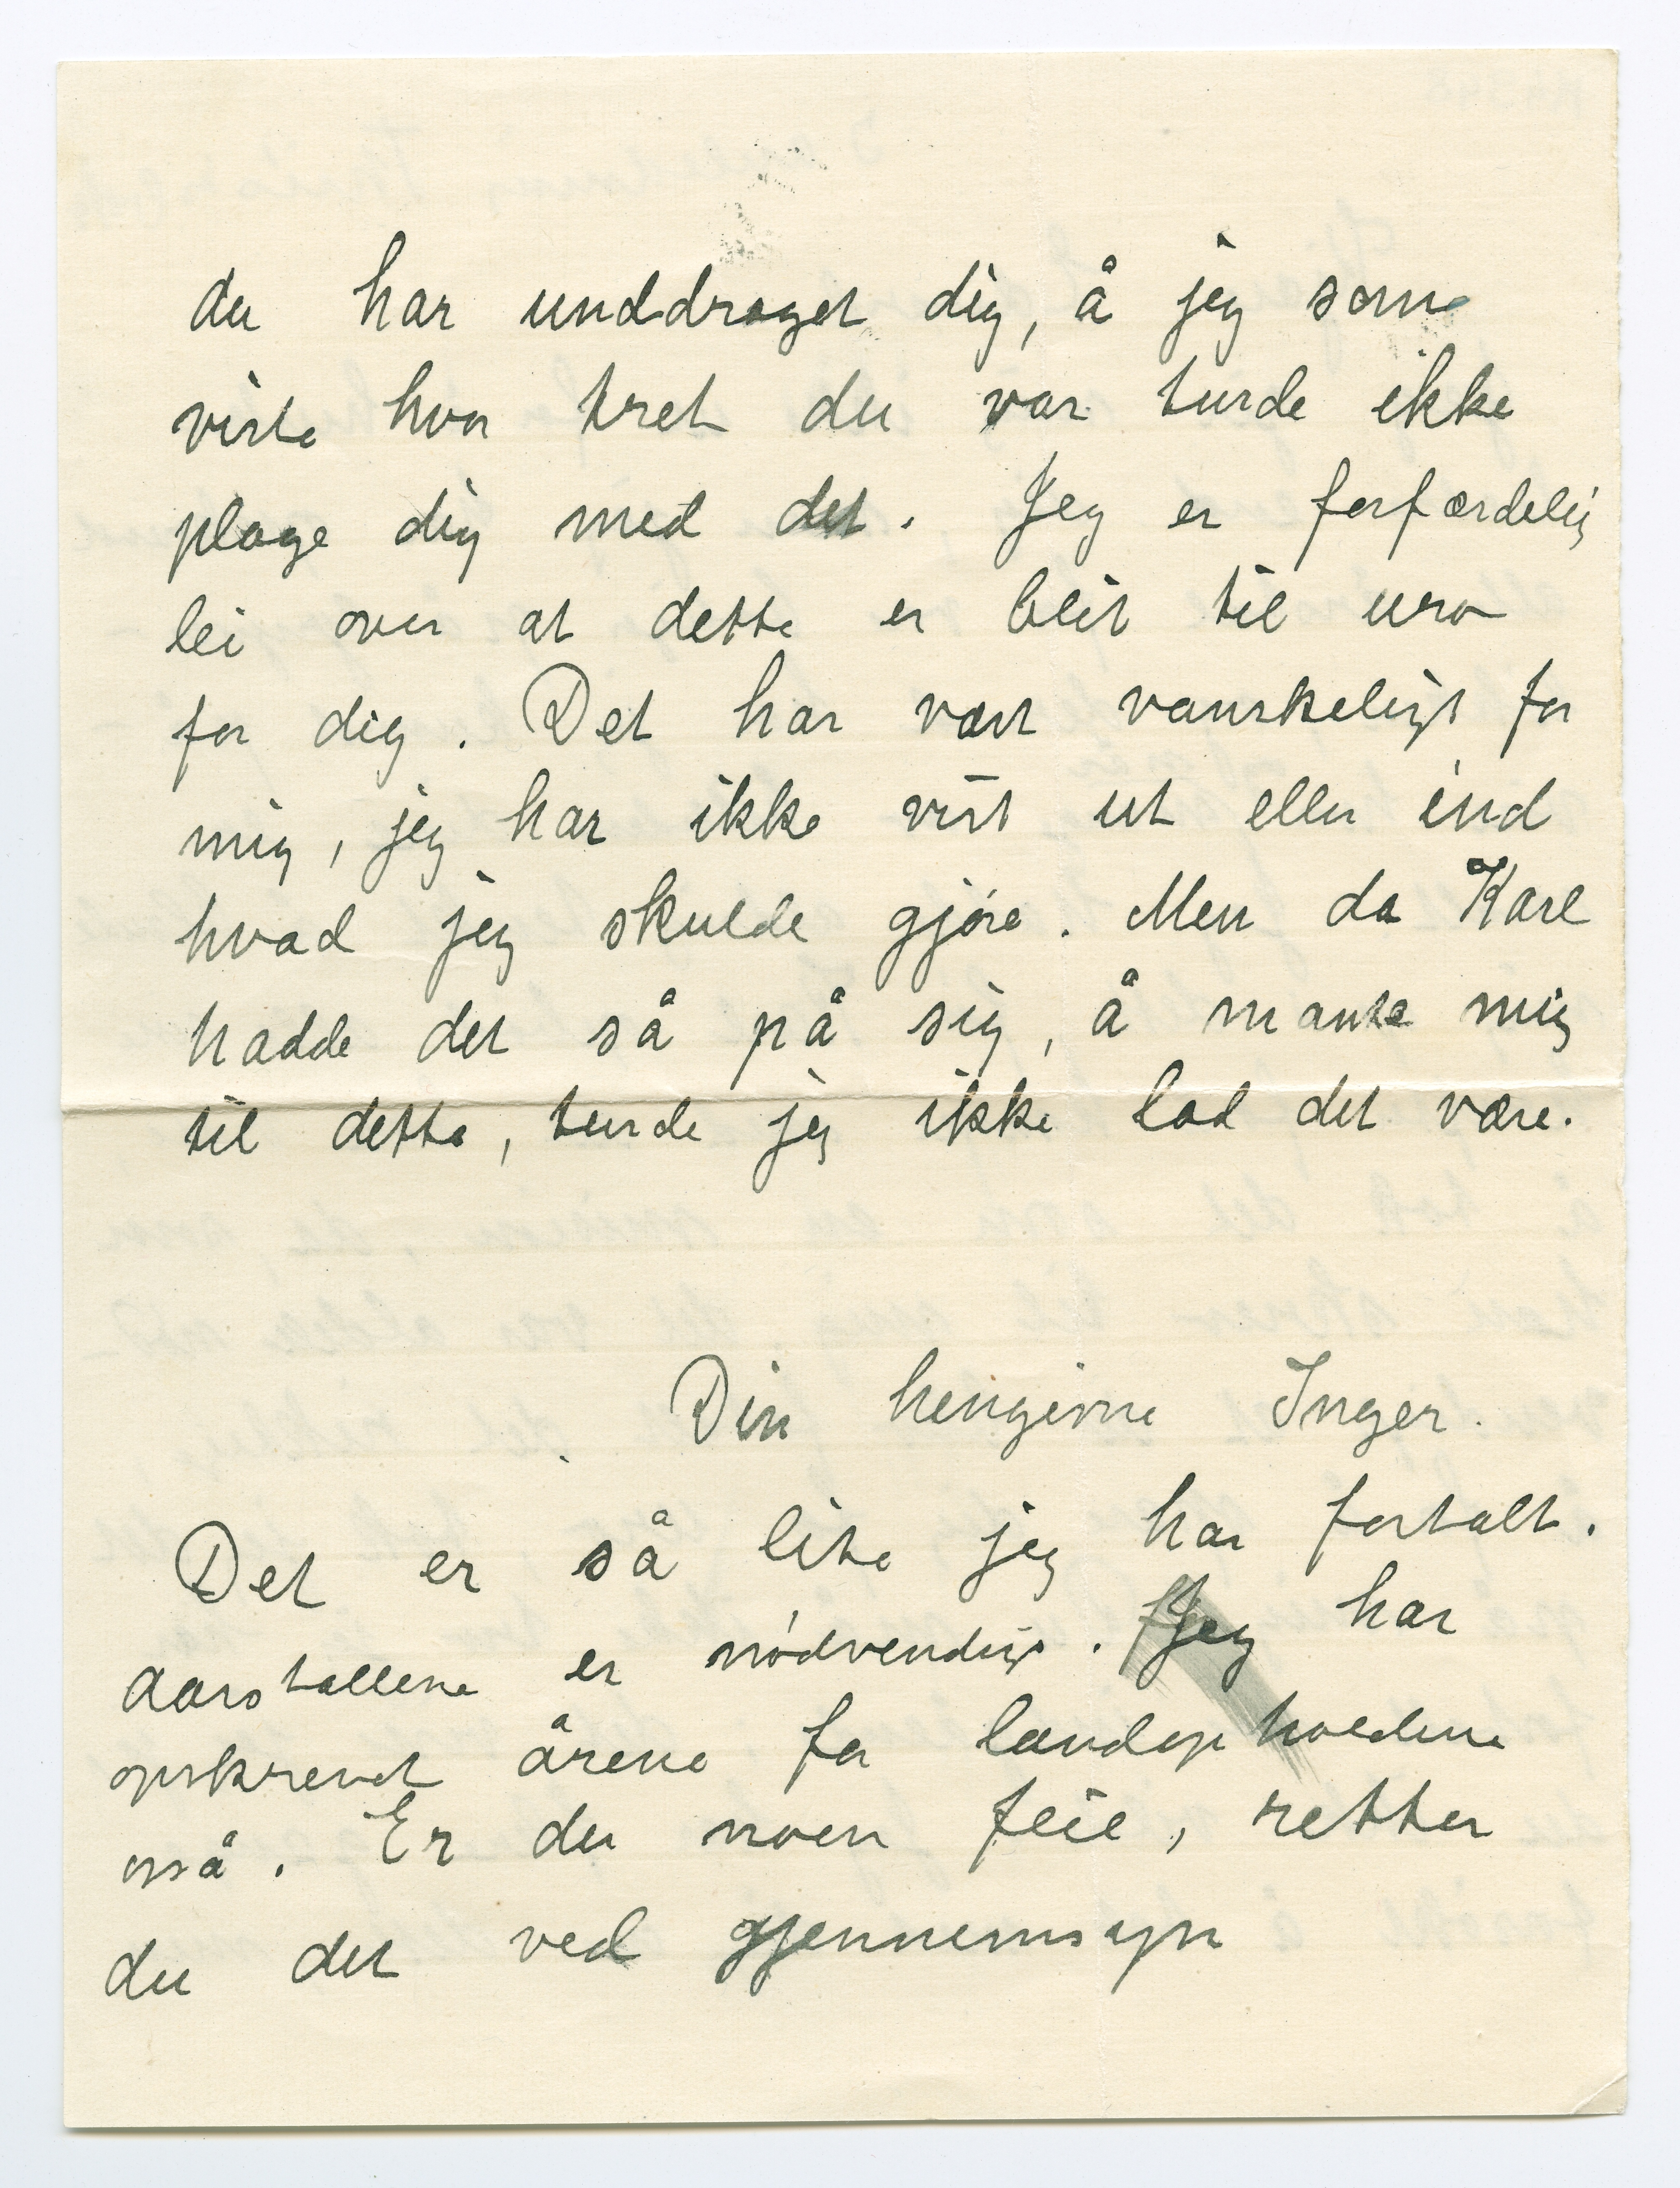 du har unddraget dig, å jeg som
viste hvor tret du var turde ikke
plage dig med det. Jeg er forfærdelig
lei over at dette er blit til uro
for dig. Det har vært vanskeligt for
mig, jeg har ikke vist ut eller ind
hvad jeg skulde gjøre. Men da Karl
hadde det så på sig, å mante mig
til dette, turde jeg ikke lad det være.
Din hengivne Inger.
Det er så lite jeg har fortalt.
Aarstallene er nødvendige. Jeg har
opskrevet årene for landopholdene
også. Er der noen feil, retter
du det ved gjennemsyn